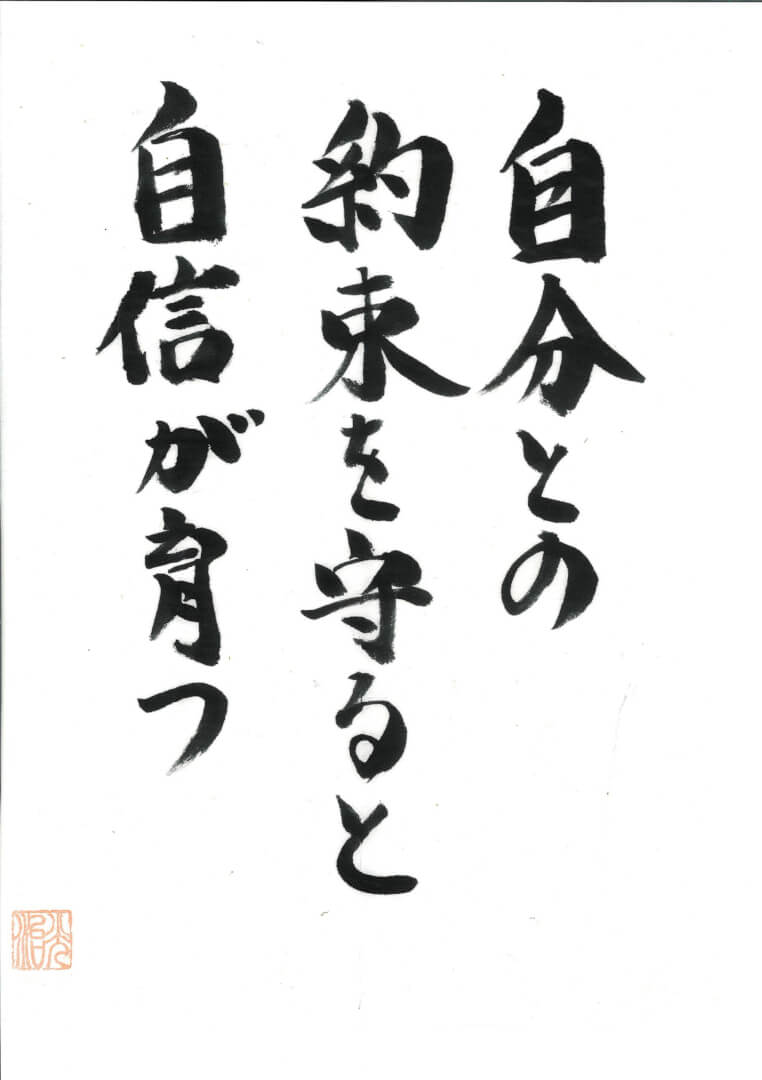 自分との
約束を守ると
自信が育つ